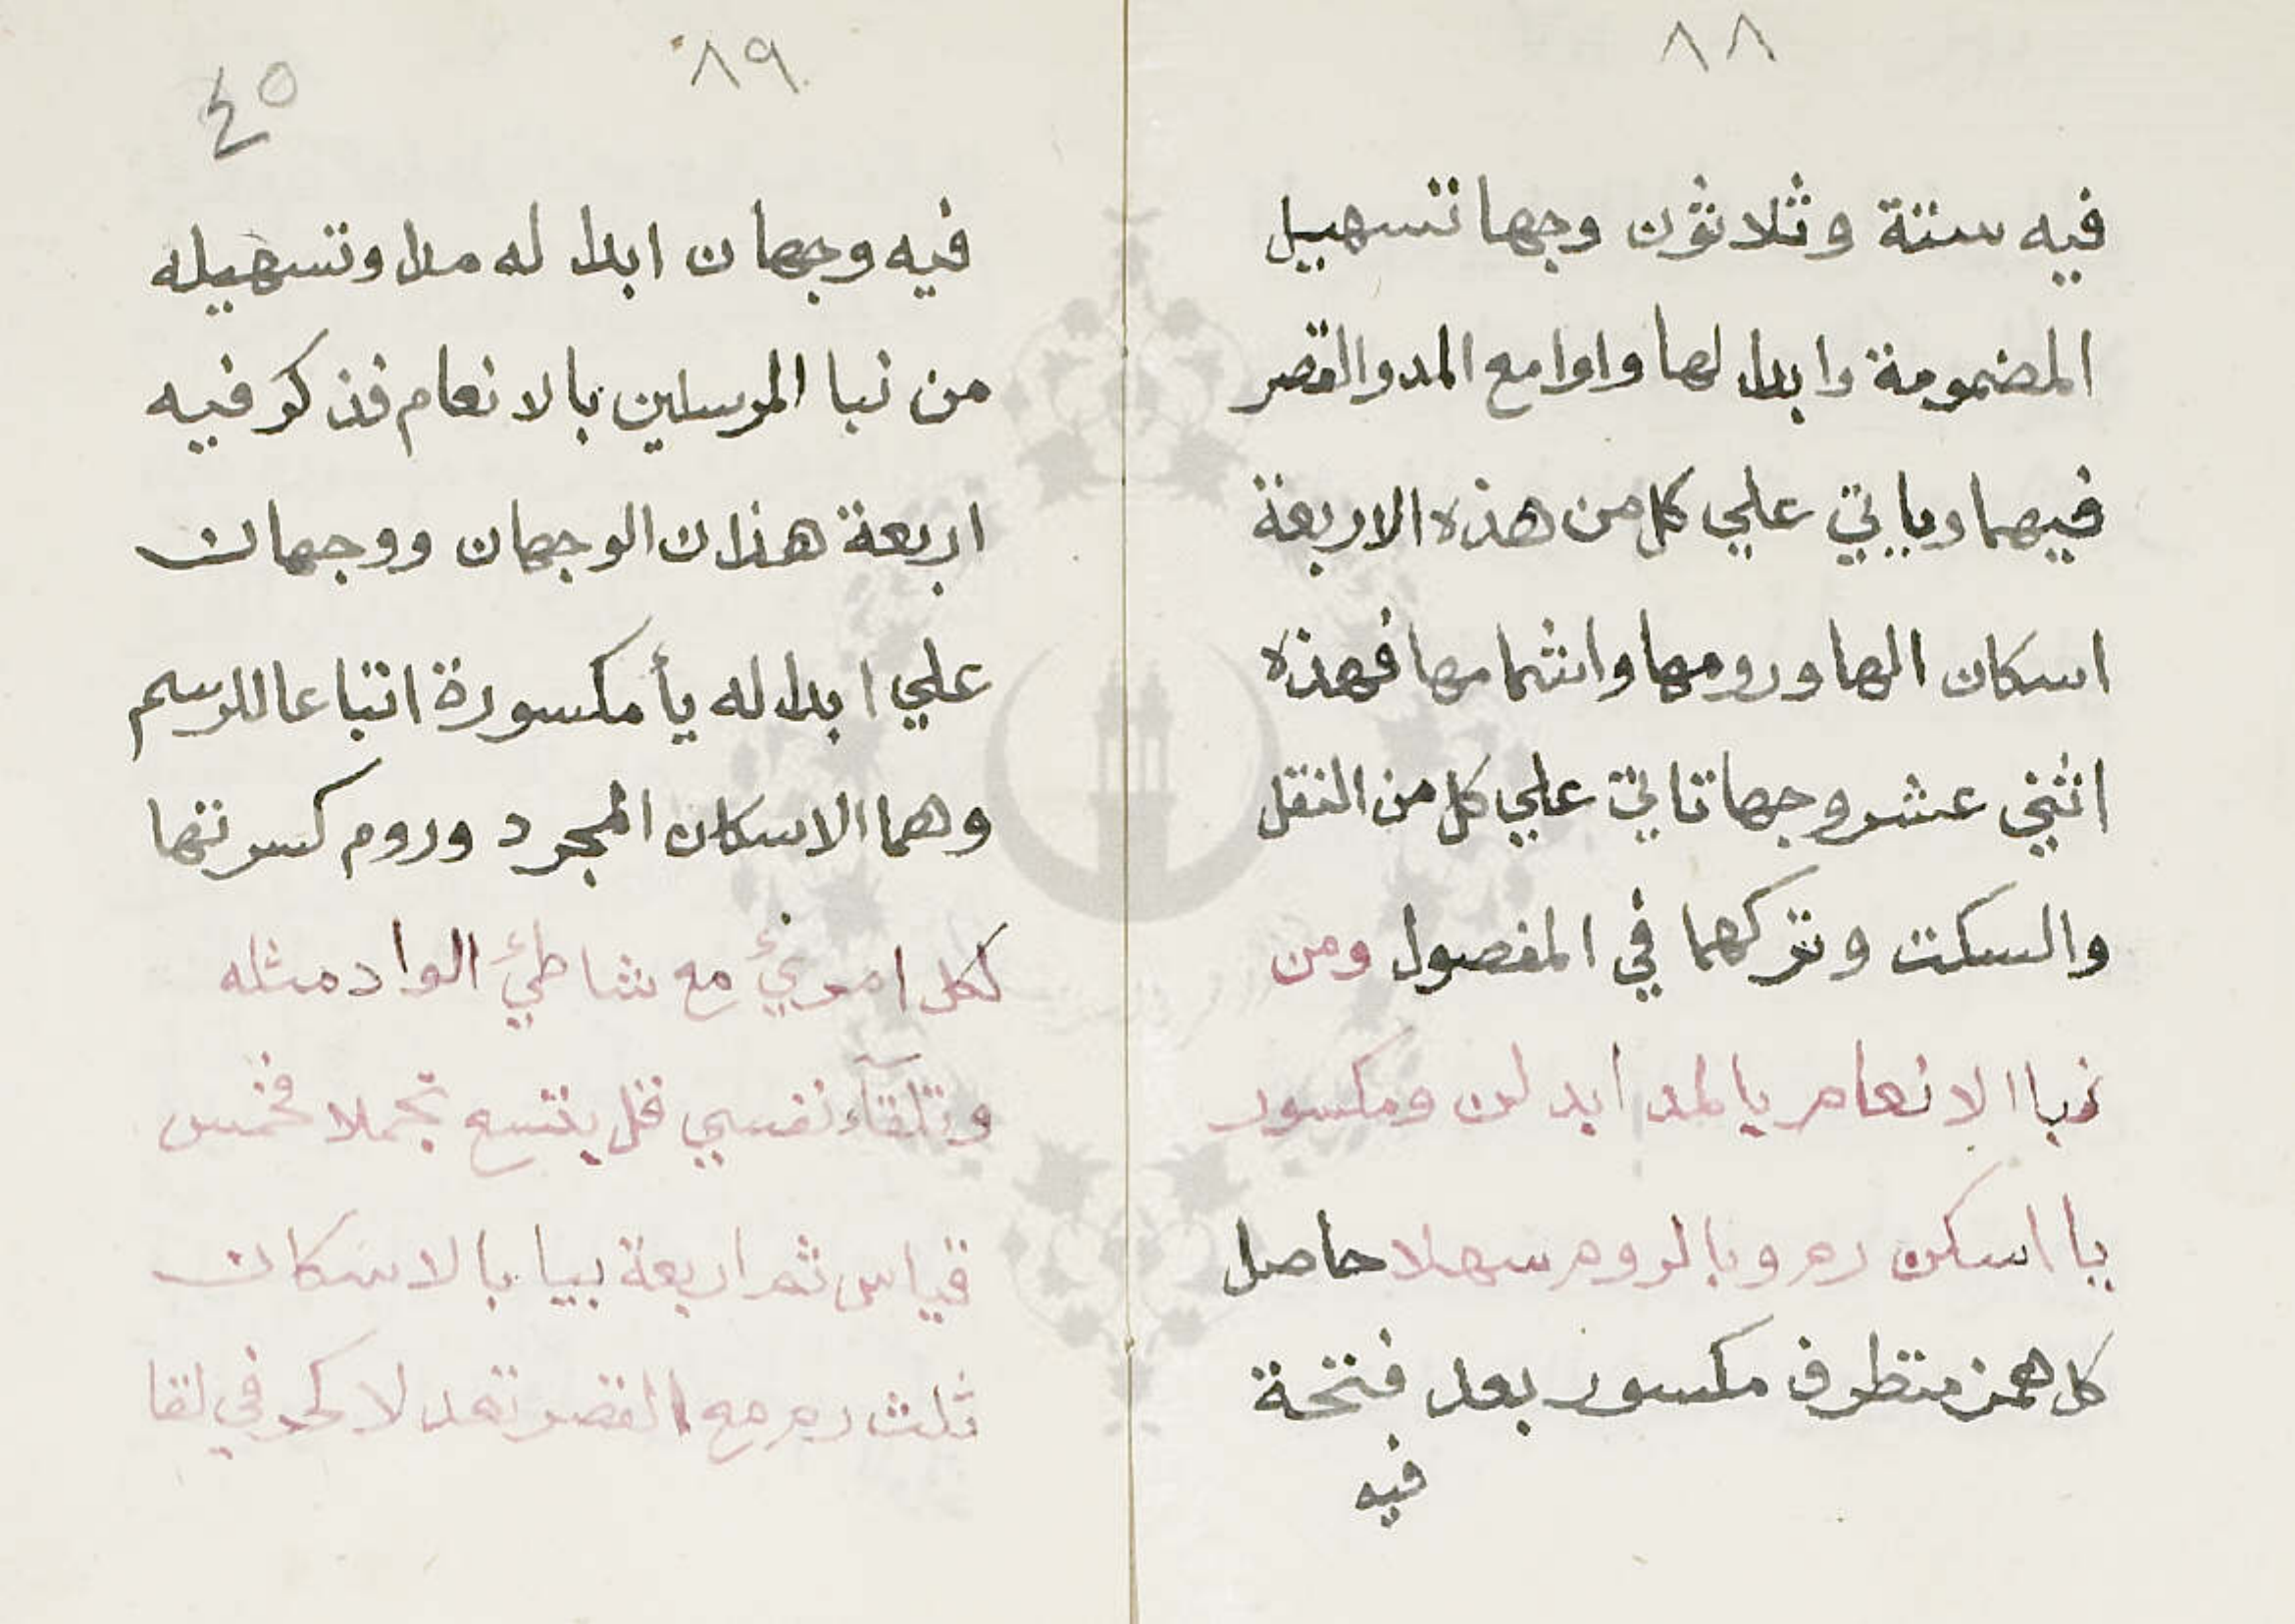 ٨٨
فيه ستة وثلاثون وجها تسهيل
المضمومة وابدالها واوا مع المد والقصر
فيهما وياتي علي كل من هذه الاربعة
اسكان الها ورومها واشمامها فهذه
اثني عشر وجها تاتي علي كل من النقل
والسكت وتركهما في المفصول ومن
نبا الانعام بالمد ابدلن ومكسور
يا اسكن رم وبالروم سهلا حاصل
كل همز متطرف مكسور بعد فتحة
فيه
٨٩
٤٥
فيه وجهان ابداله مدا وتسهيله
من نبا المرسلين بالانعام فذكر فيه
اربعة هذان الوجهان ووجهان
علي ابداله يأ مكسورة اتباعا للرسم
وهما الاسكان المجرد وروم كسرتها
لكل امريئ مع شاطيئ الواد مثله
وتلقآء نفسي قل بتسع تجملا فخمس
قياس ثم اربعة بيا بالاسكان
ثلث رم مع القصر تعدلا كحرفي لقا